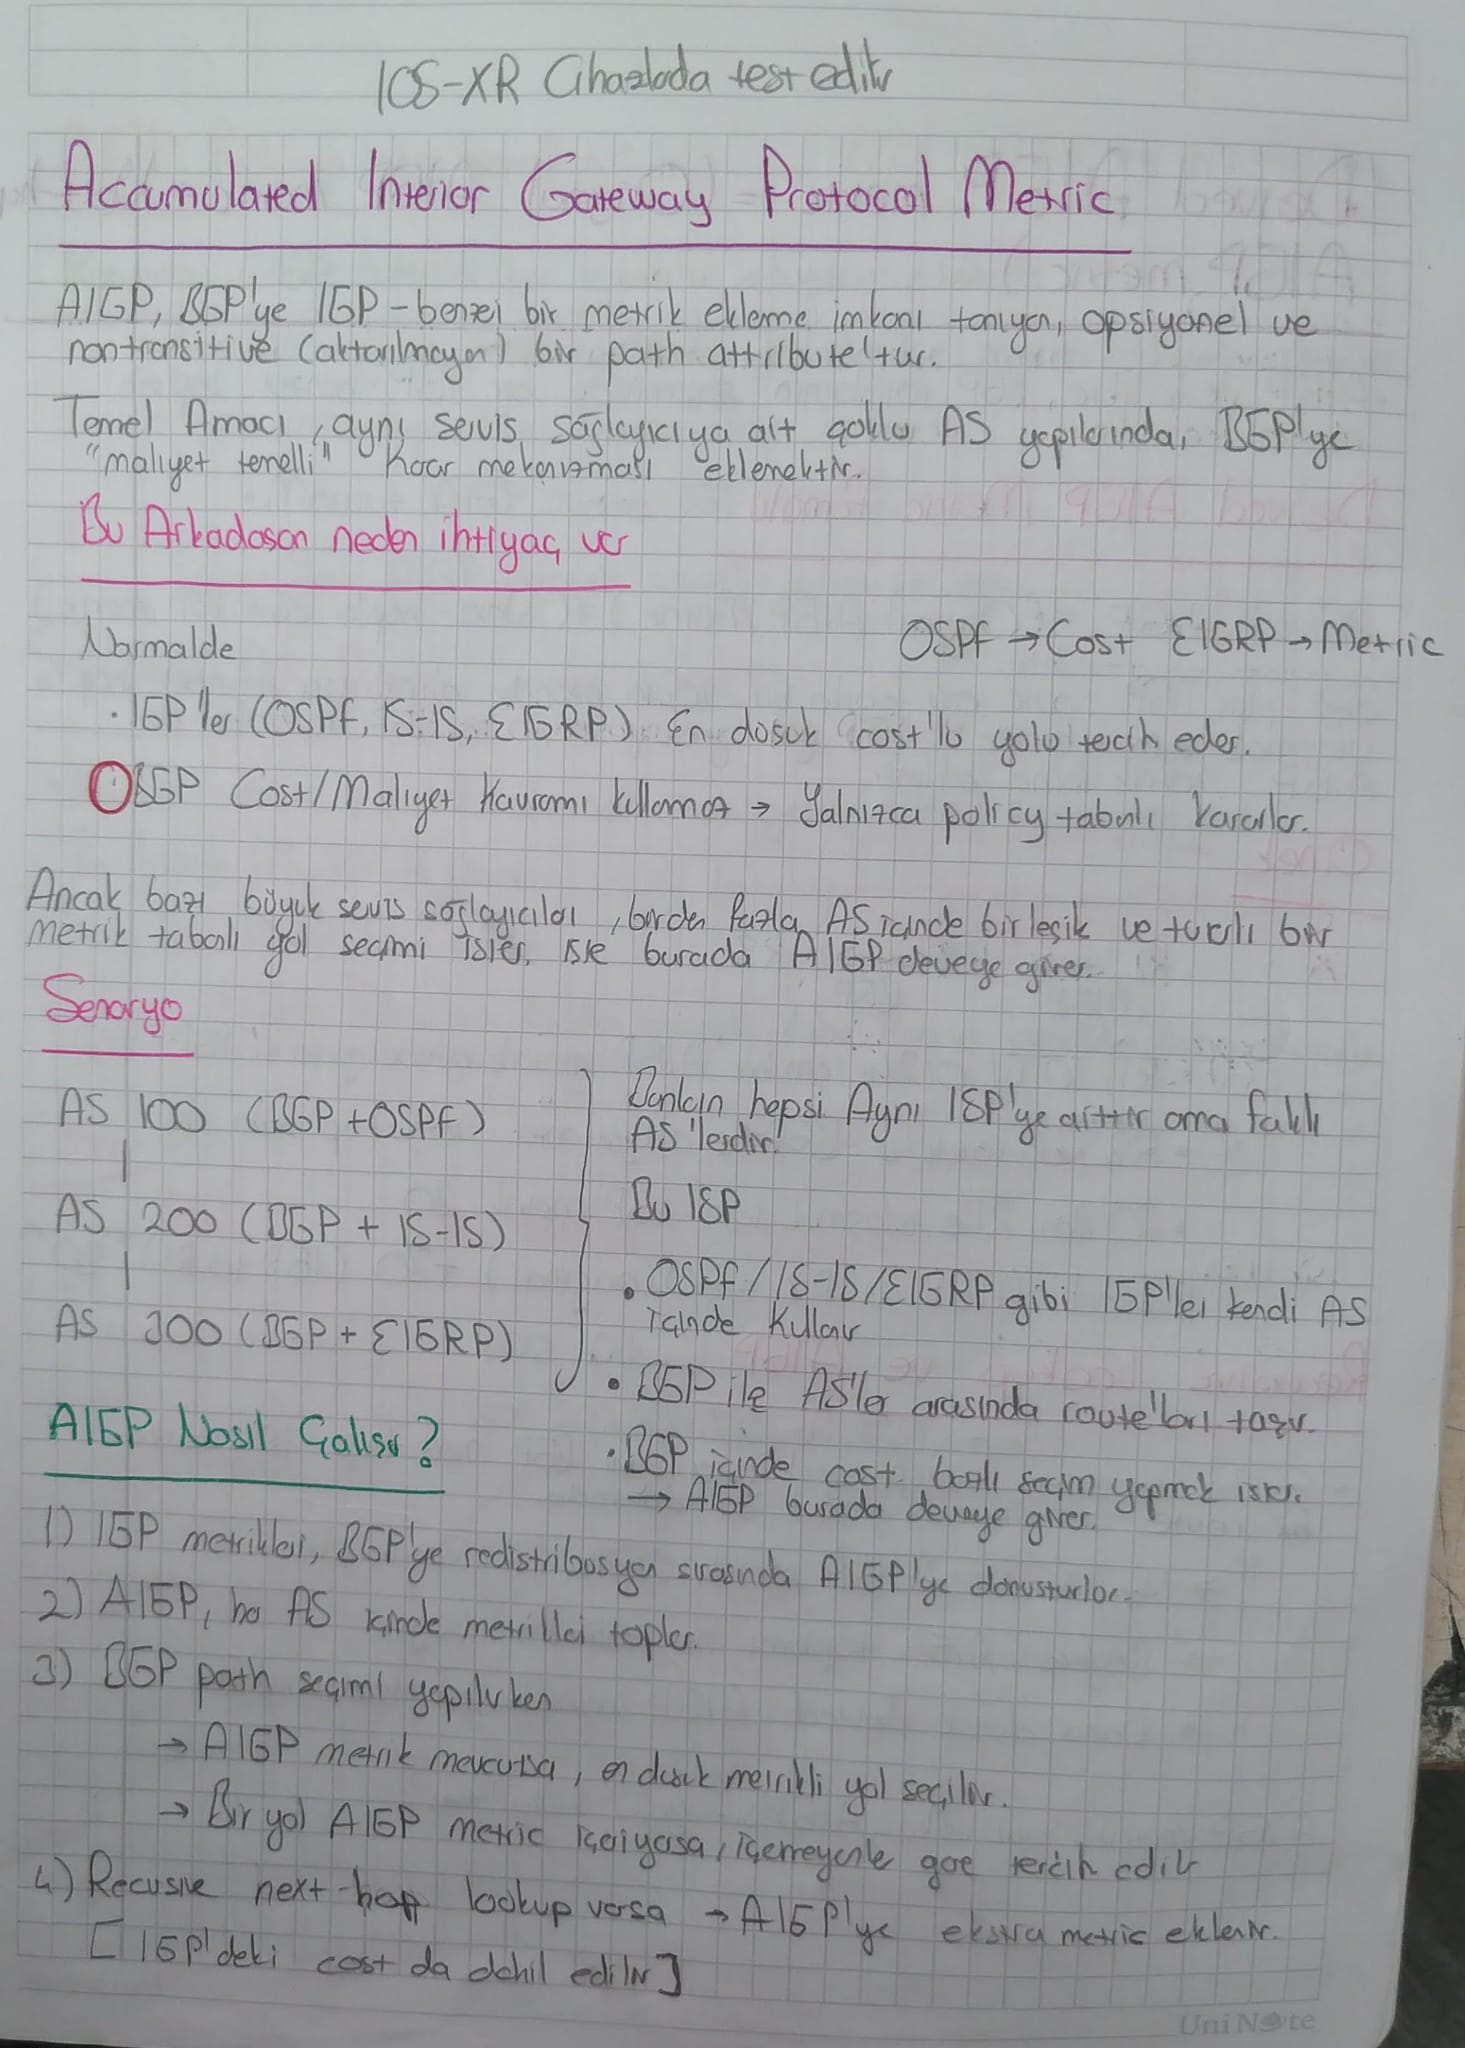 IOS-XR Cihazlada test edilir
Accumulated Interior Gateway Protocol Metric
AIGP, BGP'ye IGP-benzei bir metrik ekleme imkanı tanıyan, opsiyonel ve
nontransitive (aktarılmayan) bir path attribute'tur.
Temel Amacı, aynı sevis sağlayıcıya ait çoklu AS yapılarında, BGP'ye
"maliyet temelli" Karar mekanizması eklemektir.
Bu Arkadasan neden ihtiyaç var
Normalde
OSPF → Cost EIGRP → Metric
· IGP'ler (OSPF, IS-IS, EIGRP) En düsük cost'lu yolu tercih eder.
BGP Cost/Maliyet Kavramı kullamaz → Yalnızca policy tabanlı kararlar.
Ancak bazı büyük sevis sağlayıcıları, birden fazla AS içinde birleşik ve tutarlı bir
metrik tabanlı yol seçimi ister, iste burada AIGP deveye girer.
Senaryo
AS 100 (BGP + OSPF)
AS 200 (BGP + IS-IS)
AS 300 (BGP + EIGRP)
Bunların hepsi Aynı ISP'ye aittir ama faklı
AS'lerdir
Bu ISP
• OSPF/IS-IS/EIGRP gibi IGP'lei kendi AS
içinde Kullanır
• BGP ile AS'ler arasında route'ları taşır.
· BGP içinde cost bazlı seçim yapmak ister.
→ AIGP burada deveye girer.
AIGP Nasıl Çalışır?
1) IGP metrikleri, BGP'ye redistribusyon sırasında AIGP'ye dönüsturulur.
2) AIGP, her AS içinde metrikleri toplar.
3) BGP path seçimi yapılırken
→ AIGP metrik mevcutsa, en düsük metrikli yol seçilir.
→ Bir yol AIGP metric içeriyorsa, içermeyenle göre tercih edilir
4) Recusive next-hop lookup varsa → AIGP'ye ekstra metric eklenir.
[IGP'deki cost da dahil edilir]
UniNote